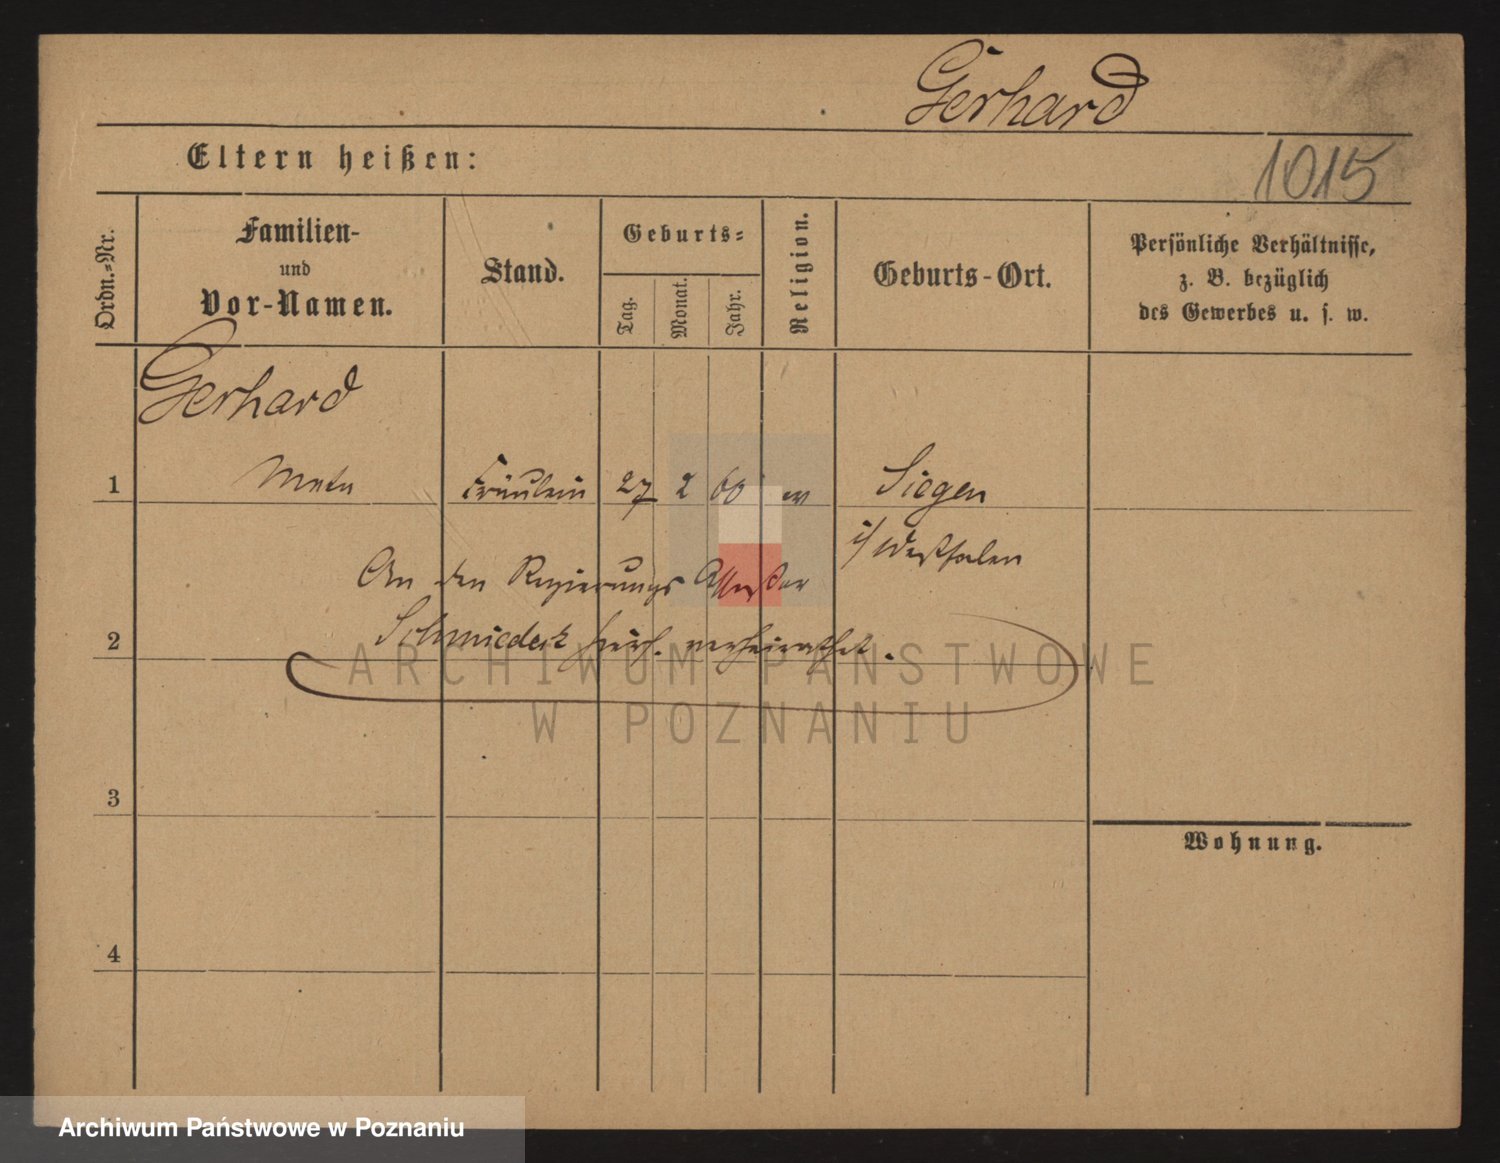 Gerhard
Eltern heißen:
1015
Ordn.-Nr.
Familien-
und
Vor-Namen.
Stand.
Geburts-
Tag.
Monat.
Jahr.
Religion.
Geburts-Ort.
Persönliche Verhältnisse,
z. B. bezüglich
des Gewerbes u. s. w.
Gerhard
1 Meta Fräulein 27 2 60 ev Siegen
i/Westfalen
An den Regierungs Assessor
2 Schmiedeck hier. verheirathet.
ARCHIWUM PAŃSTWOWE
W POZNANIU
3
Wohnung.
4
Archiwum Państwowe w Poznaniu